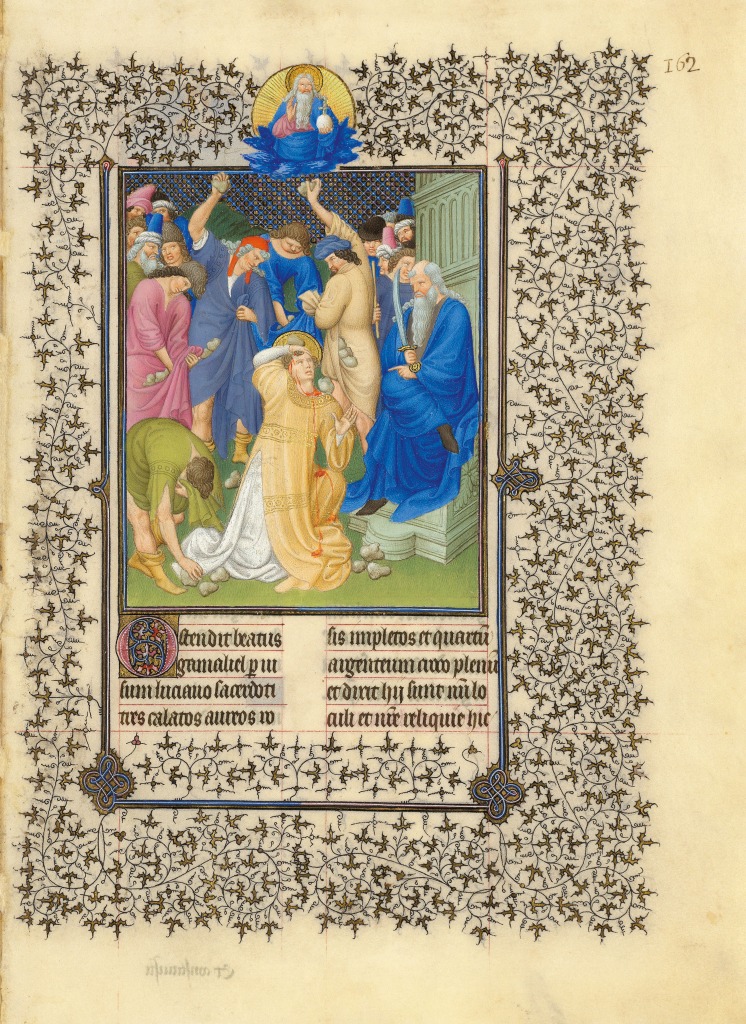 162
Ostendit beatus
gamaliel p ui
sum luciano sacerdoti
tres calatos aureos ro
sis impletos et quartū
argenteum croco plenū
et dixit hii sunt nr̄i lo
culi et nr̄e reliquie hic